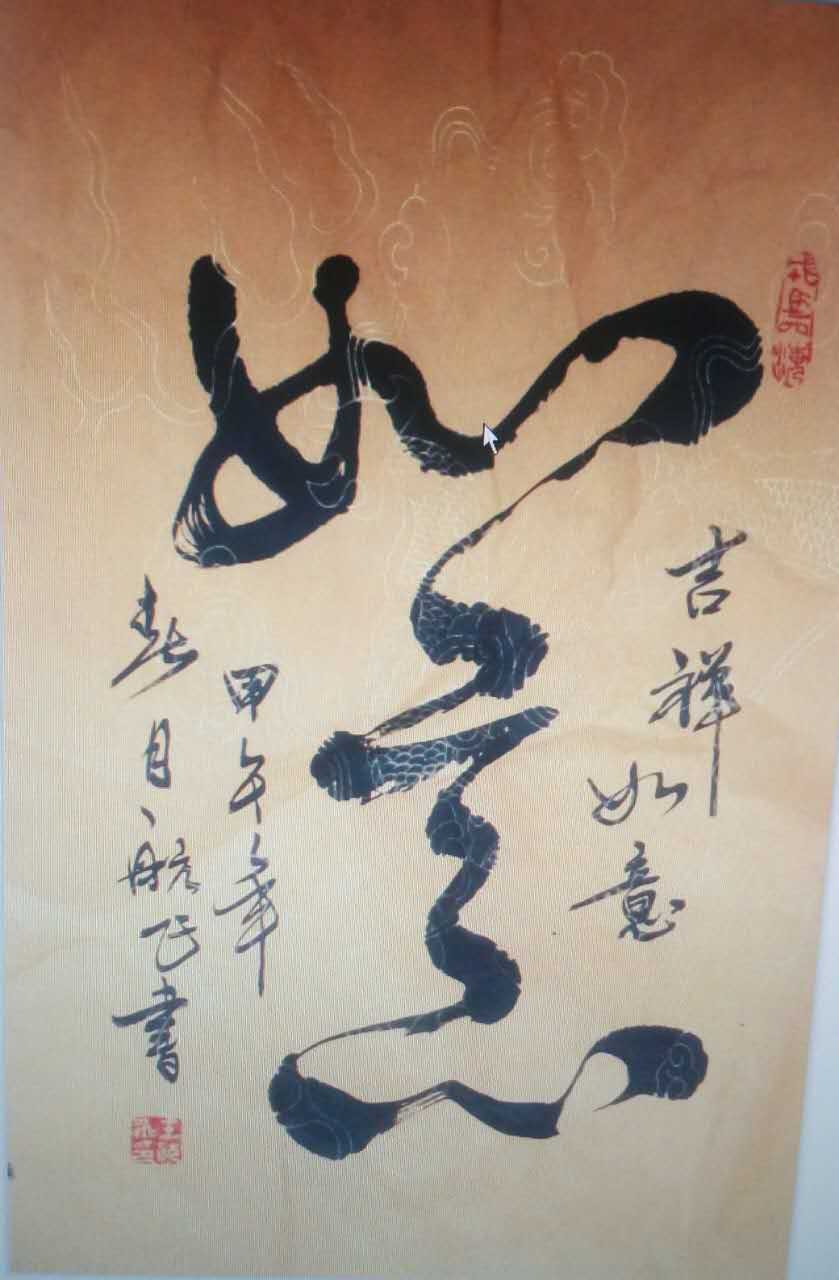 如意
吉祥如意
甲午年
春月航飞書